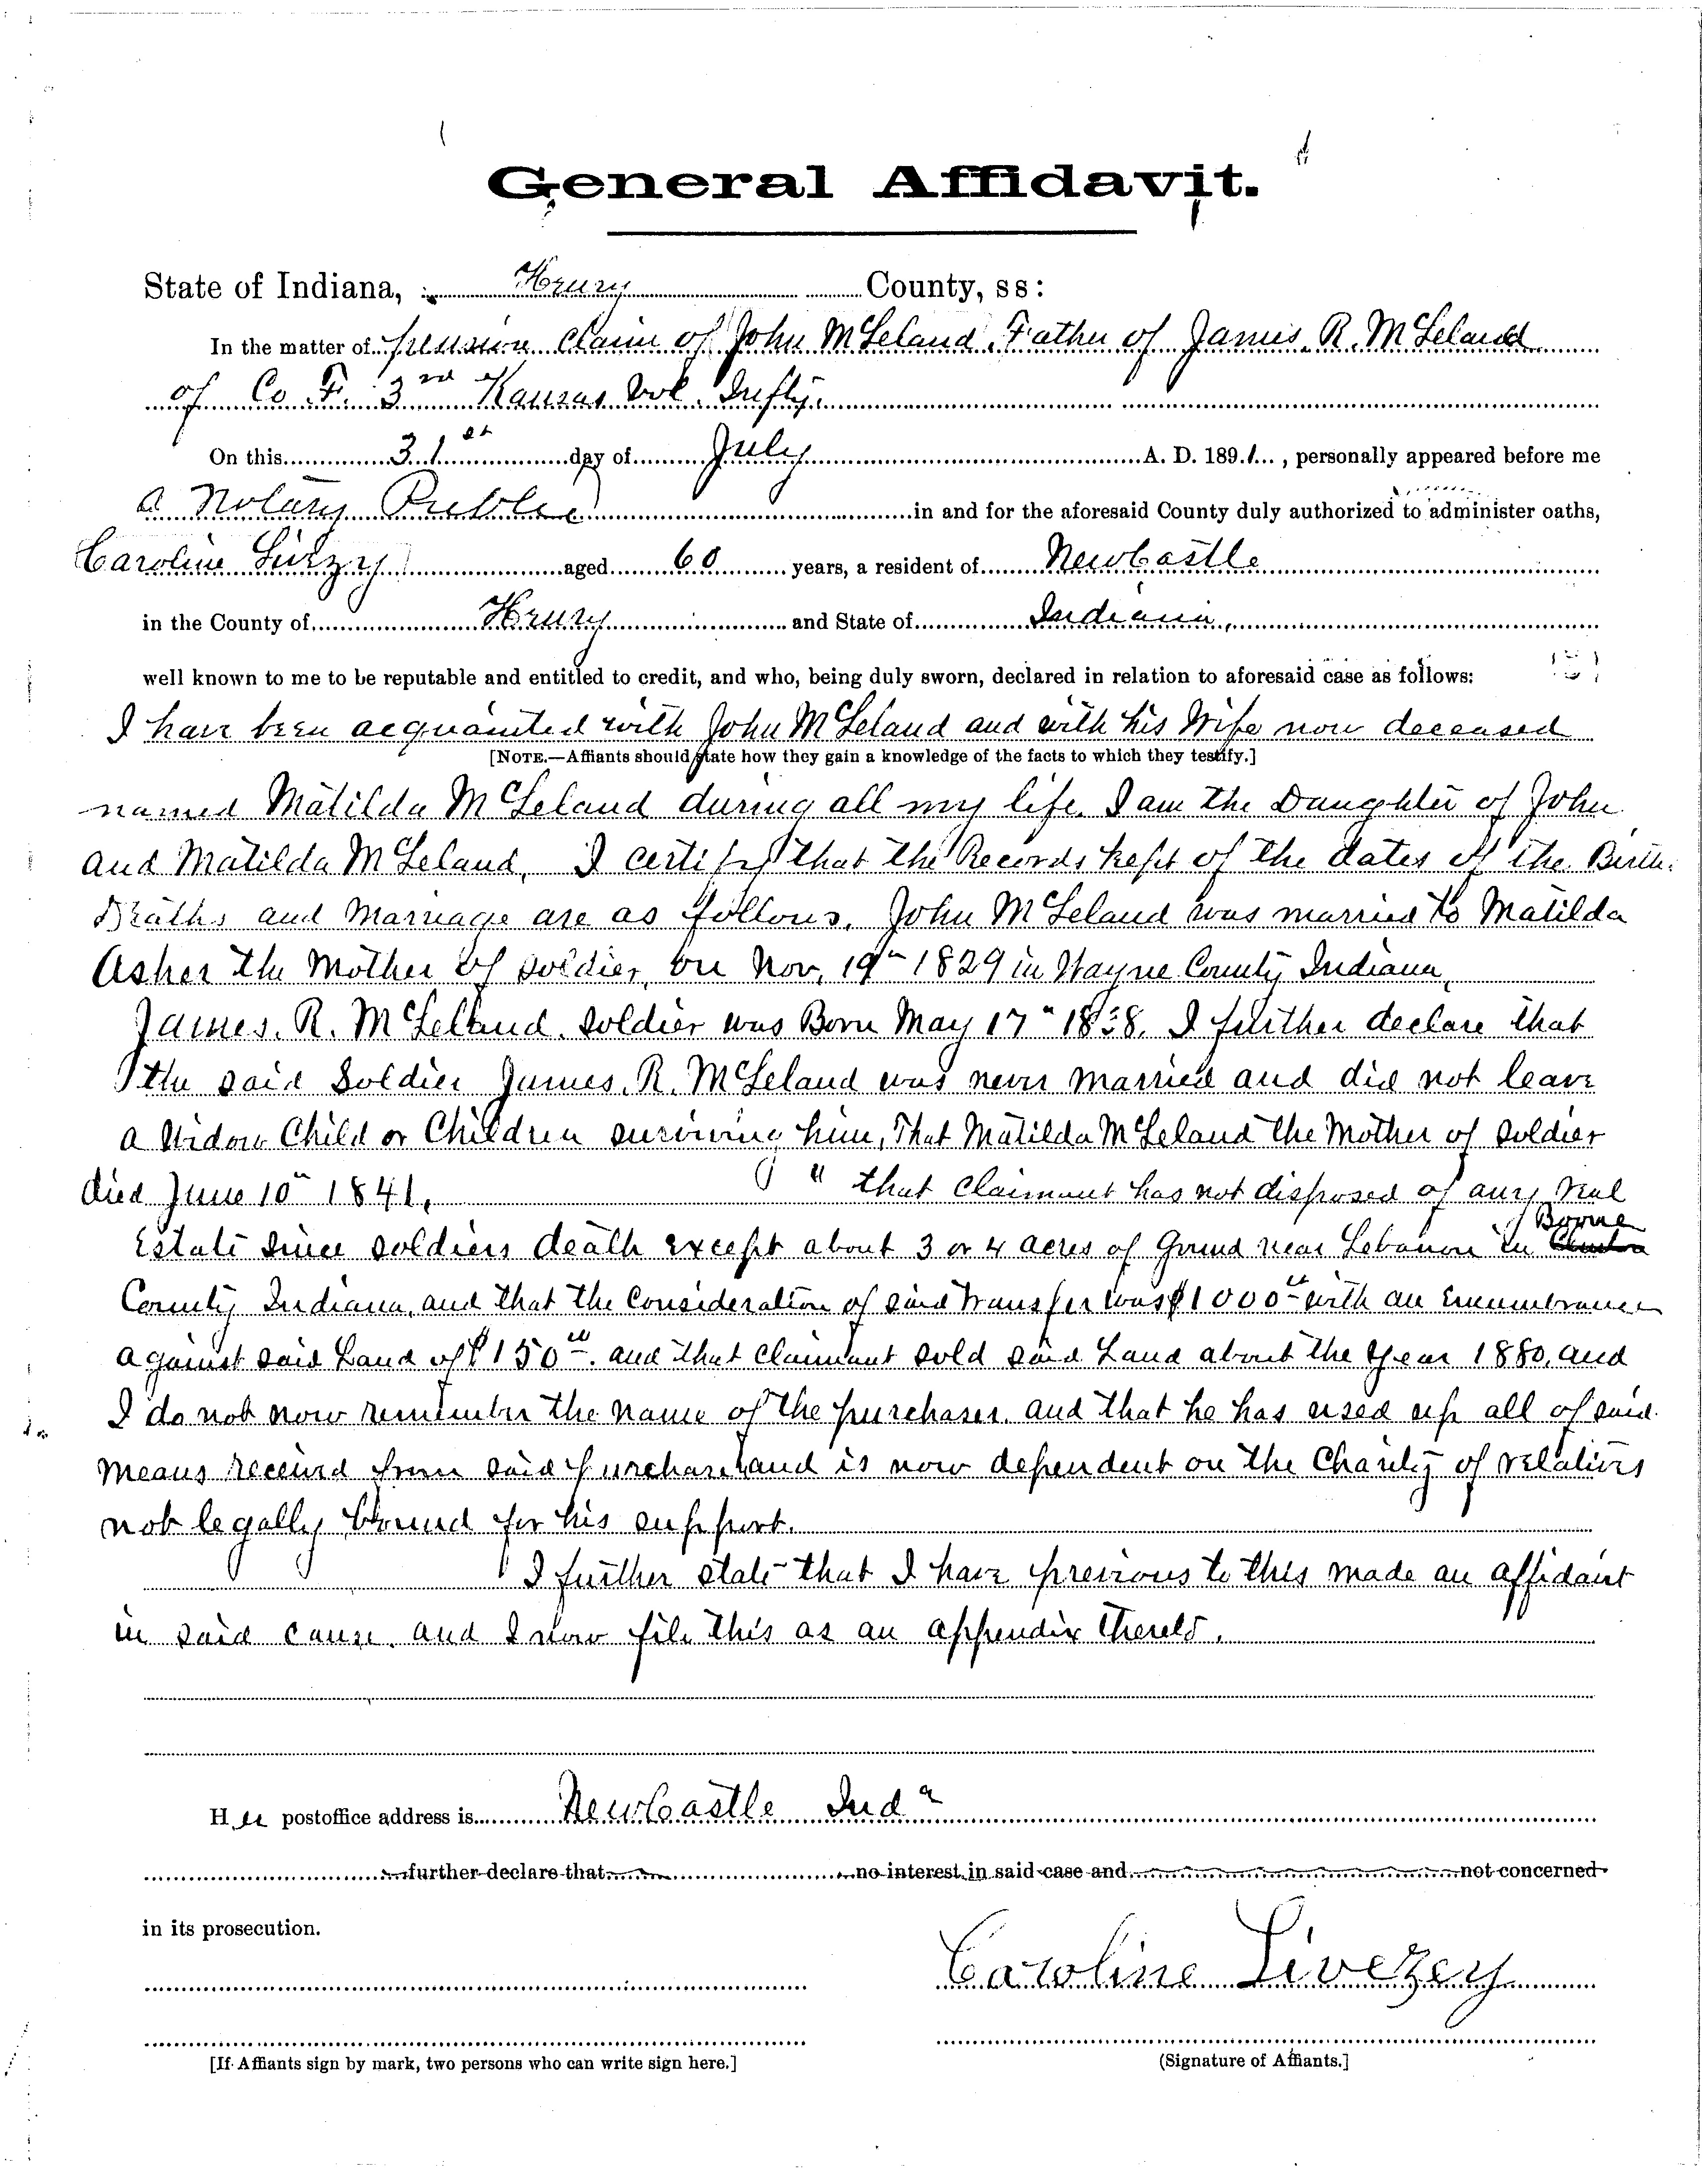 General Affidavit.
State of Indiana, Henry County, ss:
In the matter of pension claim of John McLeland Father of James R. McLeland
of Co. F. 3rd Kansas Vol. Infty.
On this 31st day of July A. D. 1891, personally appeared before me
a Notary Public in and for the aforesaid County duly authorized to administer oaths,
Caroline Livezey aged 60 years, a resident of NewCastle
in the County of Henry and State of Indiana,
well known to me to be reputable and entitled to credit, and who, being duly sworn, declared in relation to aforesaid case as follows:
I have been acquainted with John McLeland and with his Wife now deceased
[NOTE.—Affiants should state how they gain a knowledge of the facts to which they testify.]
named Matilda McLeland during all my life. I am the Daughter of John
and Matilda McLeland. I certify that the Records kept of the dates of the Birth.
Deaths and Marriage are as follows. John McLeland was married to Matilda
Asher the Mother of soldier, on Nov. 19" 1829 in Wayne County Indiana,
James. R. McLeland. soldier was Born May 17" 1838. I further declare that
the said Soldier James. R. McLeland was never married and did not leave
a Widow Child or Children surviving him, That Matilda McLeland the Mother of soldier
died June 10" 1841. " that claimant has not disposed of any real
Boone
Estate since soldiers death except about 3 or 4 acres of Ground near Lebanon in Clinton
County Indiana, and that the Consideration of said transfer was $1000 with an Encumbrance
against said Land of $150. and that claimant sold said Land about the year 1880. and
I do not now remember the name of the purchaser. and that he has used up all of said
means received from said purchaser and is now dependent on the Charity of relatives
not legally bound for his support.
I further state that I have previous to this made an affidavit
in said cause. and I now file this as an appendix thereto.
Her postoffice address is NewCastle Inda
further declare that no interest in said case and not concerned
in its prosecution.
Caroline Livezey
[If Affiants sign by mark, two persons who can write sign here.] (Signature of Affiants.]